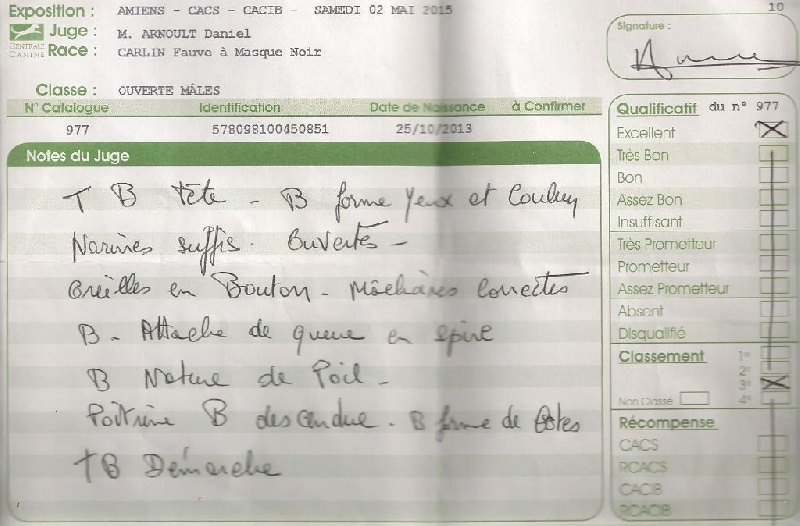 Exposition : AMIENS - CACS - CACIB - SAMEDI 02 MAI 2015
10
CENTRALE CANINE
Juge : M. ARNOULT Daniel
Race : CARLIN Fauve à Masque Noir
Signature :
Classe : OUVERTE MÂLES
N° Catalogue Identification Date de Naissance à Confirmer
977 578098100450851 25/10/2013
Notes du Juge
T B tête - B forme yeux et Couleur
Narines suffis. Ouvertes -
Oreilles en Bouton - Mâchoires Correctes
B - Attache de queue en spire
B Nature de Poil -
Poitrine B descendue - B forme de Côtes
TB Démarche
Qualificatif du n° 977
Excellent
Très Bon
Bon
Assez Bon
Insuffisant
Très Prometteur
Prometteur
Assez Prometteur
Absent
Disqualifié
Classement 1er
2e
3e
Non Classé 4e
Récompense
CACS
RCACS
CACIB
RCACIB